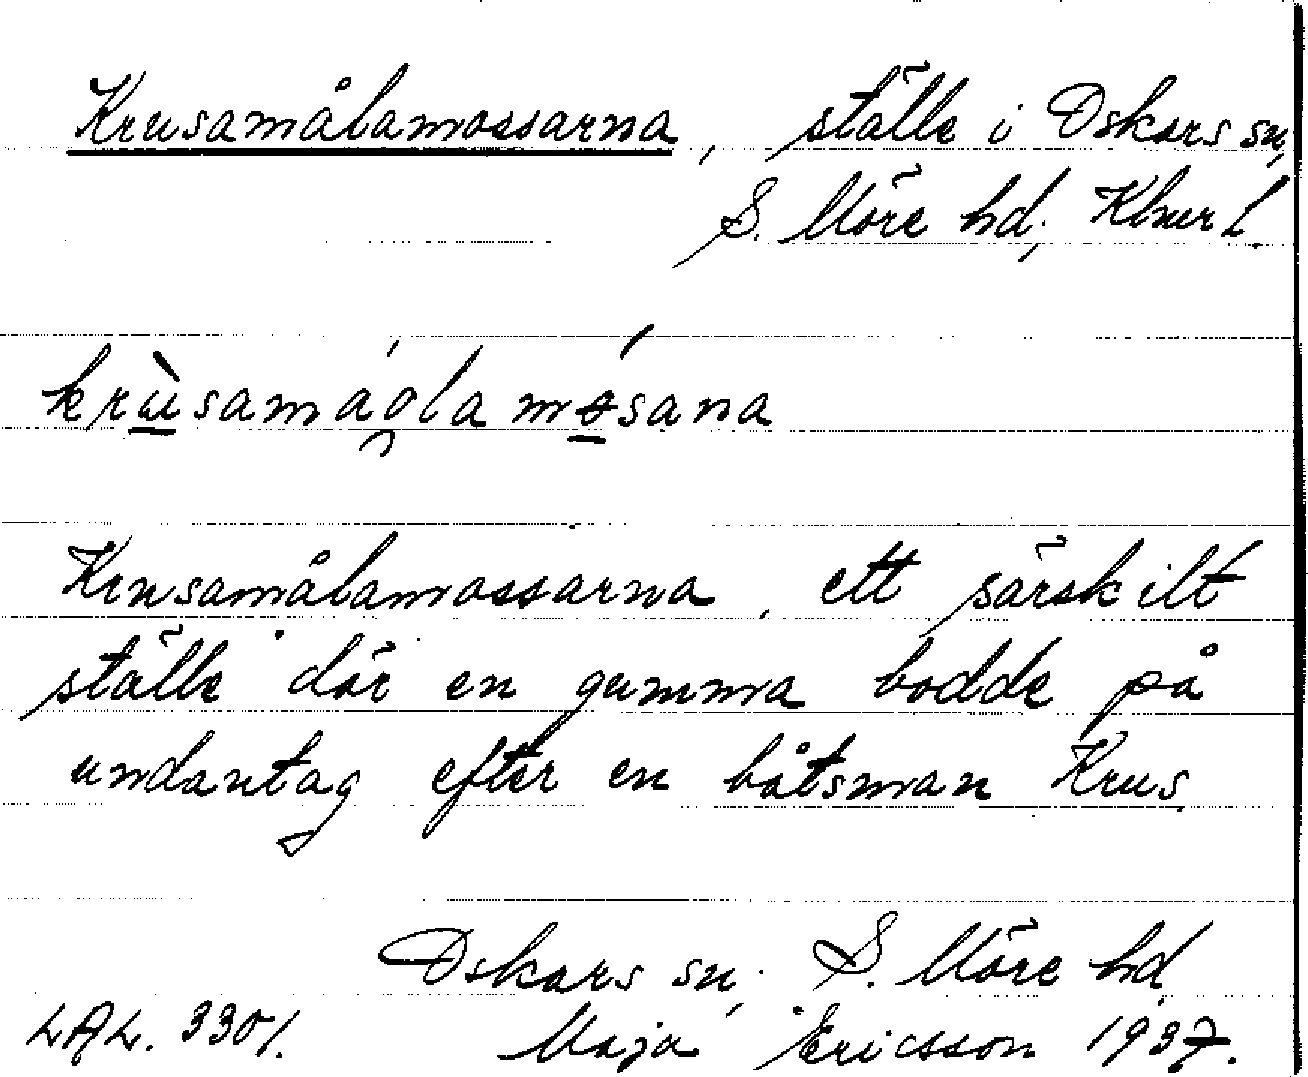 Krusamålamossarna, ställe i Oskars sn,
S. Möre hd, Klmr l.
krùsamáola mósana
Krusamålamossarna, ett särskilt
ställe där en gumma bodde på
undantag efter en båtsman Krus.
Oskars sn, S. Möre hd,
LAL. 3301. Maja Ericsson 1937.